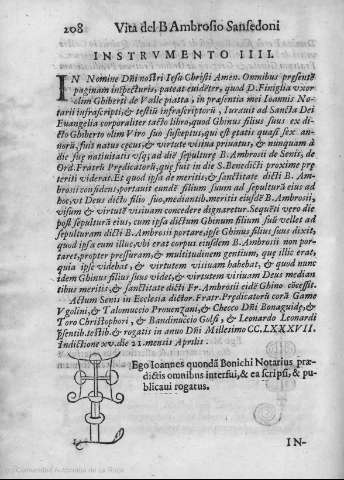 208 Vita del B Ambrosio Sansedoni
INSTRUMENTO IIII.
IN Nomine Dñi nostri Iesu Christi Amen. Omnibus presentẽ
paginam inspecturis, pateat euidẽter, quod D. Finiglia vxor
olim Ghiberti de Valle piatta, in præsentia mei Ioannis No-
tarii infrascripti, & testiũ infrascriptorũ, Iurauit ad Sancta Dei
Euangelia corporaliter tacto libro, quod Ghinus filius suus ex di-
cto Ghiberto olim Viro suo susceptus, qui est ętatis quasi sex an-
norũ, fuit natus cęcus, & virtute visiua priuatus, & nunquam à
die suę natiuitatis vsq; ad diẽ sepulturę B. Ambrosii de Senis, de
Ord. Fratrũ Prędicatorũ, quę fuit in die S. Benedicti proxime prę-
teriti viderat. Et quod ipsa de meritis, & sanctitate dicti B. Am-
brosii confidens, portauit eundẽ filium suum ad sepulturã eius ad
hoc, vt Deus dicto filio suo, mediantib. meritis eiusdẽ B. Ambrosii,
visum & virtutẽ visiuam concedere dignaretur. Sequẽti vero die
post sepulturã eius, cum ipsa dictum Ghinum filium suũ vellet ad
sepulturam dicti B. Ambrosii portare, ipse Ghinus filius suus dixit,
quod ipsa eum illuc, vbi erat corpus eiusdem B. Ambrosii non por-
taret, propter pressuram, & multitudinem gentium, quę illic erat,
quia ipse videbat, & virtutem visiuam habebat, & quod nunc
idem Ghinus filius suus videt, & virtutem visiuam Deus median
tibus meritis, & sanctitate dicti Fr. Ambrosii eidẽ Ghino cõcessit.
Actum Senis in Ecclesia dictor. Fratr. Prędicatorũ corã Gamo
Vgolini, & Talomuccio Prouenzani, & Checo Dñi Bonaguidę, &
Toro Christophori, & Bandinuccio Golfi, & Leonardo Leonardi
psentib. testib. & rogatis in anno Dñi Millesimo CC.LXXXVII.
Indictione xv. die 21. mensis Aprilis.
Ego Ioannes quondã Bonichi Notarius præ-
dictis omnibus interfui, & ea scripsi, & pu-
blicaui rogatus.
IN-
© Comunidad Autónoma de La Rioja